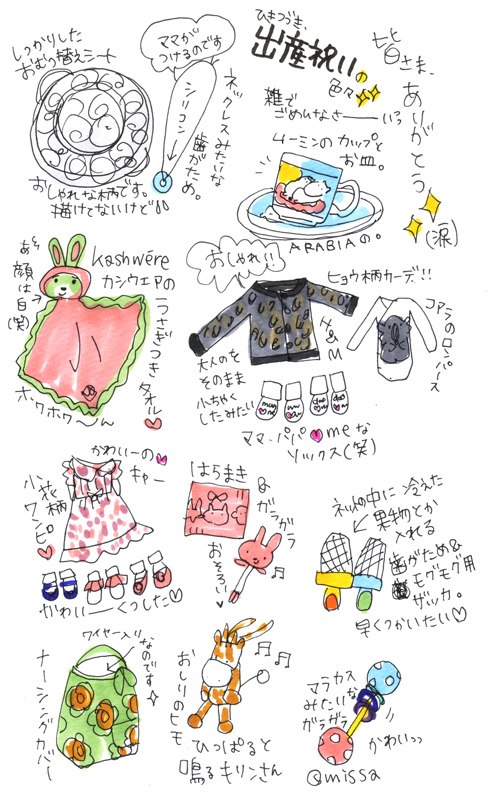 ひきつづき、
出産祝いの
色々
雑で
ごめんなさーーいっ
皆さま、ありがとう
(涙)
しっかりした
おむつ替えシート
おしゃれな柄です。
描けてないけど
ママが
つけるのです
シリコン
ネックレスみたいな
歯がため。
ムーミンのカップと
お皿。
ARABIAの。
kashwére
カシウエアの
うさぎつき
タオル
あそ
顔は白(笑)
ホワホワ〜ん
おしゃれ!!
ヒョウ柄カーデ!!
H&M
大人のを
そのまま
小ちゃく
したみたい
コアラのロンパース
ママ・パパ♥meな
ソックス(笑)
かわいーの
キャー
小花柄
ワンピ
かわいーくつした♡
はらまき
&
ガラガラ
おそろい
ネットの中に冷えた
果物とか
入れる
歯がため&
モグモグ用
ザッカ。
早くつかいたい♡
ワイヤー入り
なのです
ナーシングカバー
おしりのヒモ
ひっぱると
鳴るキリンさん
マラカス
みたいな
ガラガラ
かわいっっ
@missa